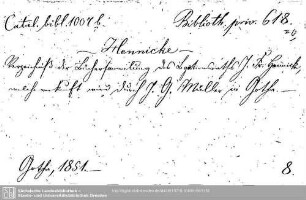 Catal. bibl. 1007 h. Biblioth. priv. 618.
Hennicke
Verzeichniß der Büchersammlung des J. Fr. Hennicke
welche verkauft wird durch J. G. Müller in Gotha.
Gotha, 1851. 8.
Sächsische Landesbibliothek -
Staats- und Universitätsbibliothek Dresden